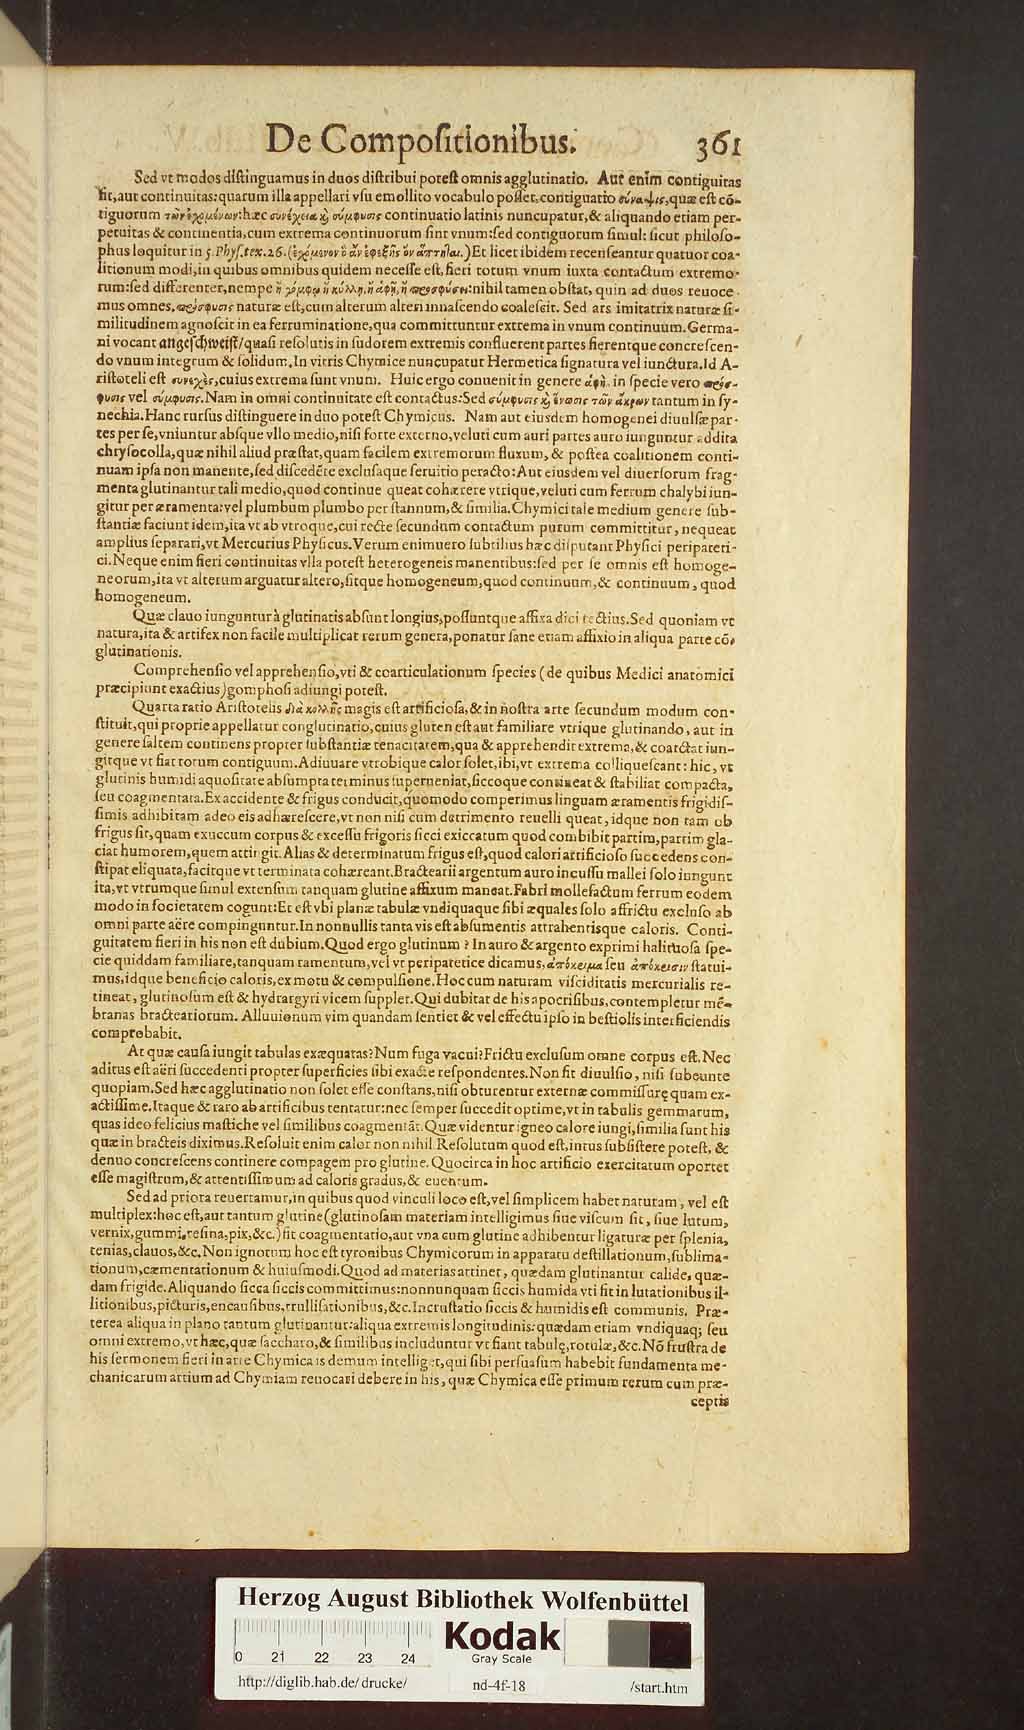 De Compositionibus. 361
Sed vt modos distinguamus in duos distribui potest omnis agglutinatio. Aut enim contiguitas
fit, aut continuitas: quarum illa appellari vsu emollito vocabulo posset, contiguatio σύναψις, quæ est cō-
tiguorum τῶν ἐχομένων: hæc συνέχεια κ σύμφυσις continuatio latinis nuncupatur, & aliquando etiam per-
petuitas & continentia, cum extrema continuorum sint vnum: sed contiguorum simul: sicut philoso-
phus loquitur in 5. Phys. tex. 26. (ἐχόμενον ὃ ἂν ἐφεξῆς ὂν ἅπτηται.) Et licet ibidem recenseantur quatuor coa-
litionum modi, in quibus omnibus quidem necesse est, fieri totum vnum iuxta contactum extremo-
rum: sed differenter, nempe ἢ γόμφῳ ἢ κόλλῃ, ἢ ἁφῇ, ἢ προσφύσει: nihil tamen obstat, quin ad duos reuoce-
mus omnes, πρόσφυσις naturæ est, cum alterum alteri innascendo coalescit. Sed ars imitatrix naturæ si-
militudinem agnoscit in ea ferruminatione, qua committuntur extrema in vnum continuum. Germa-
ni vocant angeschweist/ quasi resolutis in sudorem extremis confluerent partes fierentque concrescen-
do vnum integrum & solidum. In vitris Chymice nuncupatur Hermetica signatura vel iunctura. Id A-
ristoteli est συνεχὲς, cuius extrema sunt vnum. Huic ergo conuenit in genere ἁφὴ, in specie vero πρόσ-
φυσις vel σύμφυσις. Nam in omni continuitate est contactus: Sed σύμφυσις κ ἕνωσις τῶν ἄκρων tantum in sy-
nechia. Hanc rursus distinguere in duo potest Chymicus. Nam aut eiusdem homogenei diuulsæ par-
tes per se, vniuntur absque vllo medio, nisi forte externo, veluti cum auri partes auro iunguntur addita
chrysocolla, quæ nihil aliud præstat, quam facilem extremorum fluxum, & postea coalitionem conti-
nuam ipsa non manente, sed discedēte exclusaque seruitio peracto: Aut eiusdem vel diuersorum frag-
menta glutinantur tali medio, quod continue queat cohærere vtrique, veluti cum ferrum chalybi iun-
gitur per æramenta: vel plumbum plumbo per stannum, & similia. Chymici tale medium genere sub-
stantiæ faciunt idem, ita vt ab vtroque, cui recte secundum contactum purum committitur, nequeat
amplius separari, vt Mercurius Physicus. Verum enimuero subtilius hæc disputant Physici peripateti-
ci. Neque enim fieri continuitas vlla potest heterogeneis manentibus: sed per se omnis est homoge-
neorum, ita vt alterum arguatur altero, sitque homogeneum, quod continuum, & continuum, quod
homogeneum.
Quæ clauo iunguntur à glutinatis absunt longius, possuntque affixa dici rectius. Sed quoniam vt
natura, ita & artifex non facile multiplicat rerum genera, ponatur sane etiam affixio in aliqua parte cō-
glutinationis.
Comprehensio vel apprehensio, vti & coarticulationum species (de quibus Medici anatomici
præcipiunt exactius) gomphosi adiungi potest.
Quarta ratio Aristotelis διὰ κολλῆς magis est artificiosa, & in nostra arte secundum modum con-
stituit, qui proprie appellatur conglutinatio, cuius gluten est aut familiare vtrique glutinando, aut in
genere saltem continens propter substantiæ tenacitatem, qua & apprehendit extrema, & coarctat iun-
gitque vt fiat totum contiguum. Adiuuare vtrobique calor solet, ibi, vt extrema colliquescant: hic, vt
glutinis humidi aquositate absumpta terminus superueniat, siccoque contineat & stabiliat compacta,
seu coagmentata. Ex accidente & frigus conducit, quomodo comperimus linguam æramentis frigidis-
simis adhibitam adeo eis adhærescere, vt non nisi cum detrimento reuelli queat, idque non tam ob
frigus fit, quam exuccum corpus & excessu frigoris sicci exiccatum quod combibit partim, partim gla-
ciat humorem, quem attingit. Alias & determinatum frigus est, quod calori artificioso succedens con-
stipat eliquata, facitque vt terminata cohæreant. Bractearii argentum auro incussu mallei solo iungunt
ita, vt vtrumque simul extensum tanquam glutine affixum maneat. Fabri mollefactum ferrum eodem
modo in societatem cogunt: Et est vbi planæ tabulæ vndiquaque sibi æquales solo affrictu excluso ab
omni parte aëre compinguntur. In nonnullis tanta vis est absumentis attrahentisque caloris. Conti-
guitatem fieri in his non est dubium. Quod ergo glutinum? In auro & argento exprimi halituosa spe-
cie quiddam familiare, tanquam ramentum, vel vt peripatetice dicamus, ἀπόκριμα seu ἀπόκρισιν statui-
mus, idque beneficio caloris, ex motu & compulsione. Hoc cum naturam visciditatis mercurialis re-
tineat, glutinosum est & hydrargyri vicem supplet. Qui dubitat de his apocrisibus, contempletur mē-
branas bracteariorum. Alluuionum vim quandam sentiet & vel effectu ipso in bestiolis interficiendis
comprobabit.
At quæ causa iungit tabulas exæquatas? Num fuga vacui? Frictu exclusum omne corpus est. Nec
aditus est aëri succedenti propter superficies sibi exacte respondentes. Non fit diuulsio, nisi subeunte
quopiam. Sed hæc agglutinatio non solet esse constans, nisi obturentur externæ commissurę quam ex-
actissime. Itaque & raro ab artificibus tentatur: nec semper succedit optime, vt in tabulis gemmarum,
quas ideo felicius mastiche vel similibus coagmentāt. Quæ videntur igneo calore iungi, similia sunt his
quæ in bracteis diximus. Resoluit enim calor non nihil Resolutum quod est, intus subsistere potest, &
denuo concrescens continere compagem pro glutine. Quocirca in hoc artificio exercitatum oportet
esse magistrum, & attentissimum ad caloris gradus, & euentum.
Sed ad priora reuertamur, in quibus quod vinculi loco est, vel simplicem habet naturam, vel est
multiplex: hoc est, aut tantum glutine (glutinosam materiam intelligimus siue viscum sit, siue lutum,
vernix, gummi, resina, pix, &c.) fit coagmentatio, aut vna cum glutine adhibentur ligaturæ per splenia,
tenias, clauos, &c. Non ignotum hoc est tyronibus Chymicorum in apparatu destillationum, sublima-
tionum, cæmentationum & huiusmodi. Quod ad materias attinet, quædam glutinantur calide, quæ-
dam frigide. Aliquando sicca siccis committimus: nonnunquam siccis humida vti fit in lutationibus il-
litionibus, picturis, encausibus, trullisationibus, &c. Incrustatio siccis & humidis est communis. Præ-
terea aliqua in plano tantum glutinantur: aliqua extremis longitudinis: quædam etiam vndiquaq; seu
omni extremo, vt hæc, quæ saccharo, & similibus includuntur vt fiant tabulę, rotulæ, &c. Nō frustra de
his sermonem fieri in arte Chymica is demum intelliget, qui sibi persuasum habebit fundamenta me-
chanicarum artium ad Chymiam reuocari debere in his, quæ Chymica esse primum rerum cum præ-
ceptis
Herzog August Bibliothek Wolfenbüttel
Kodak
Gray Scale
0 21 22 23 24
http://diglib.hab.de/drucke/ nd-4f-18 /start.htm